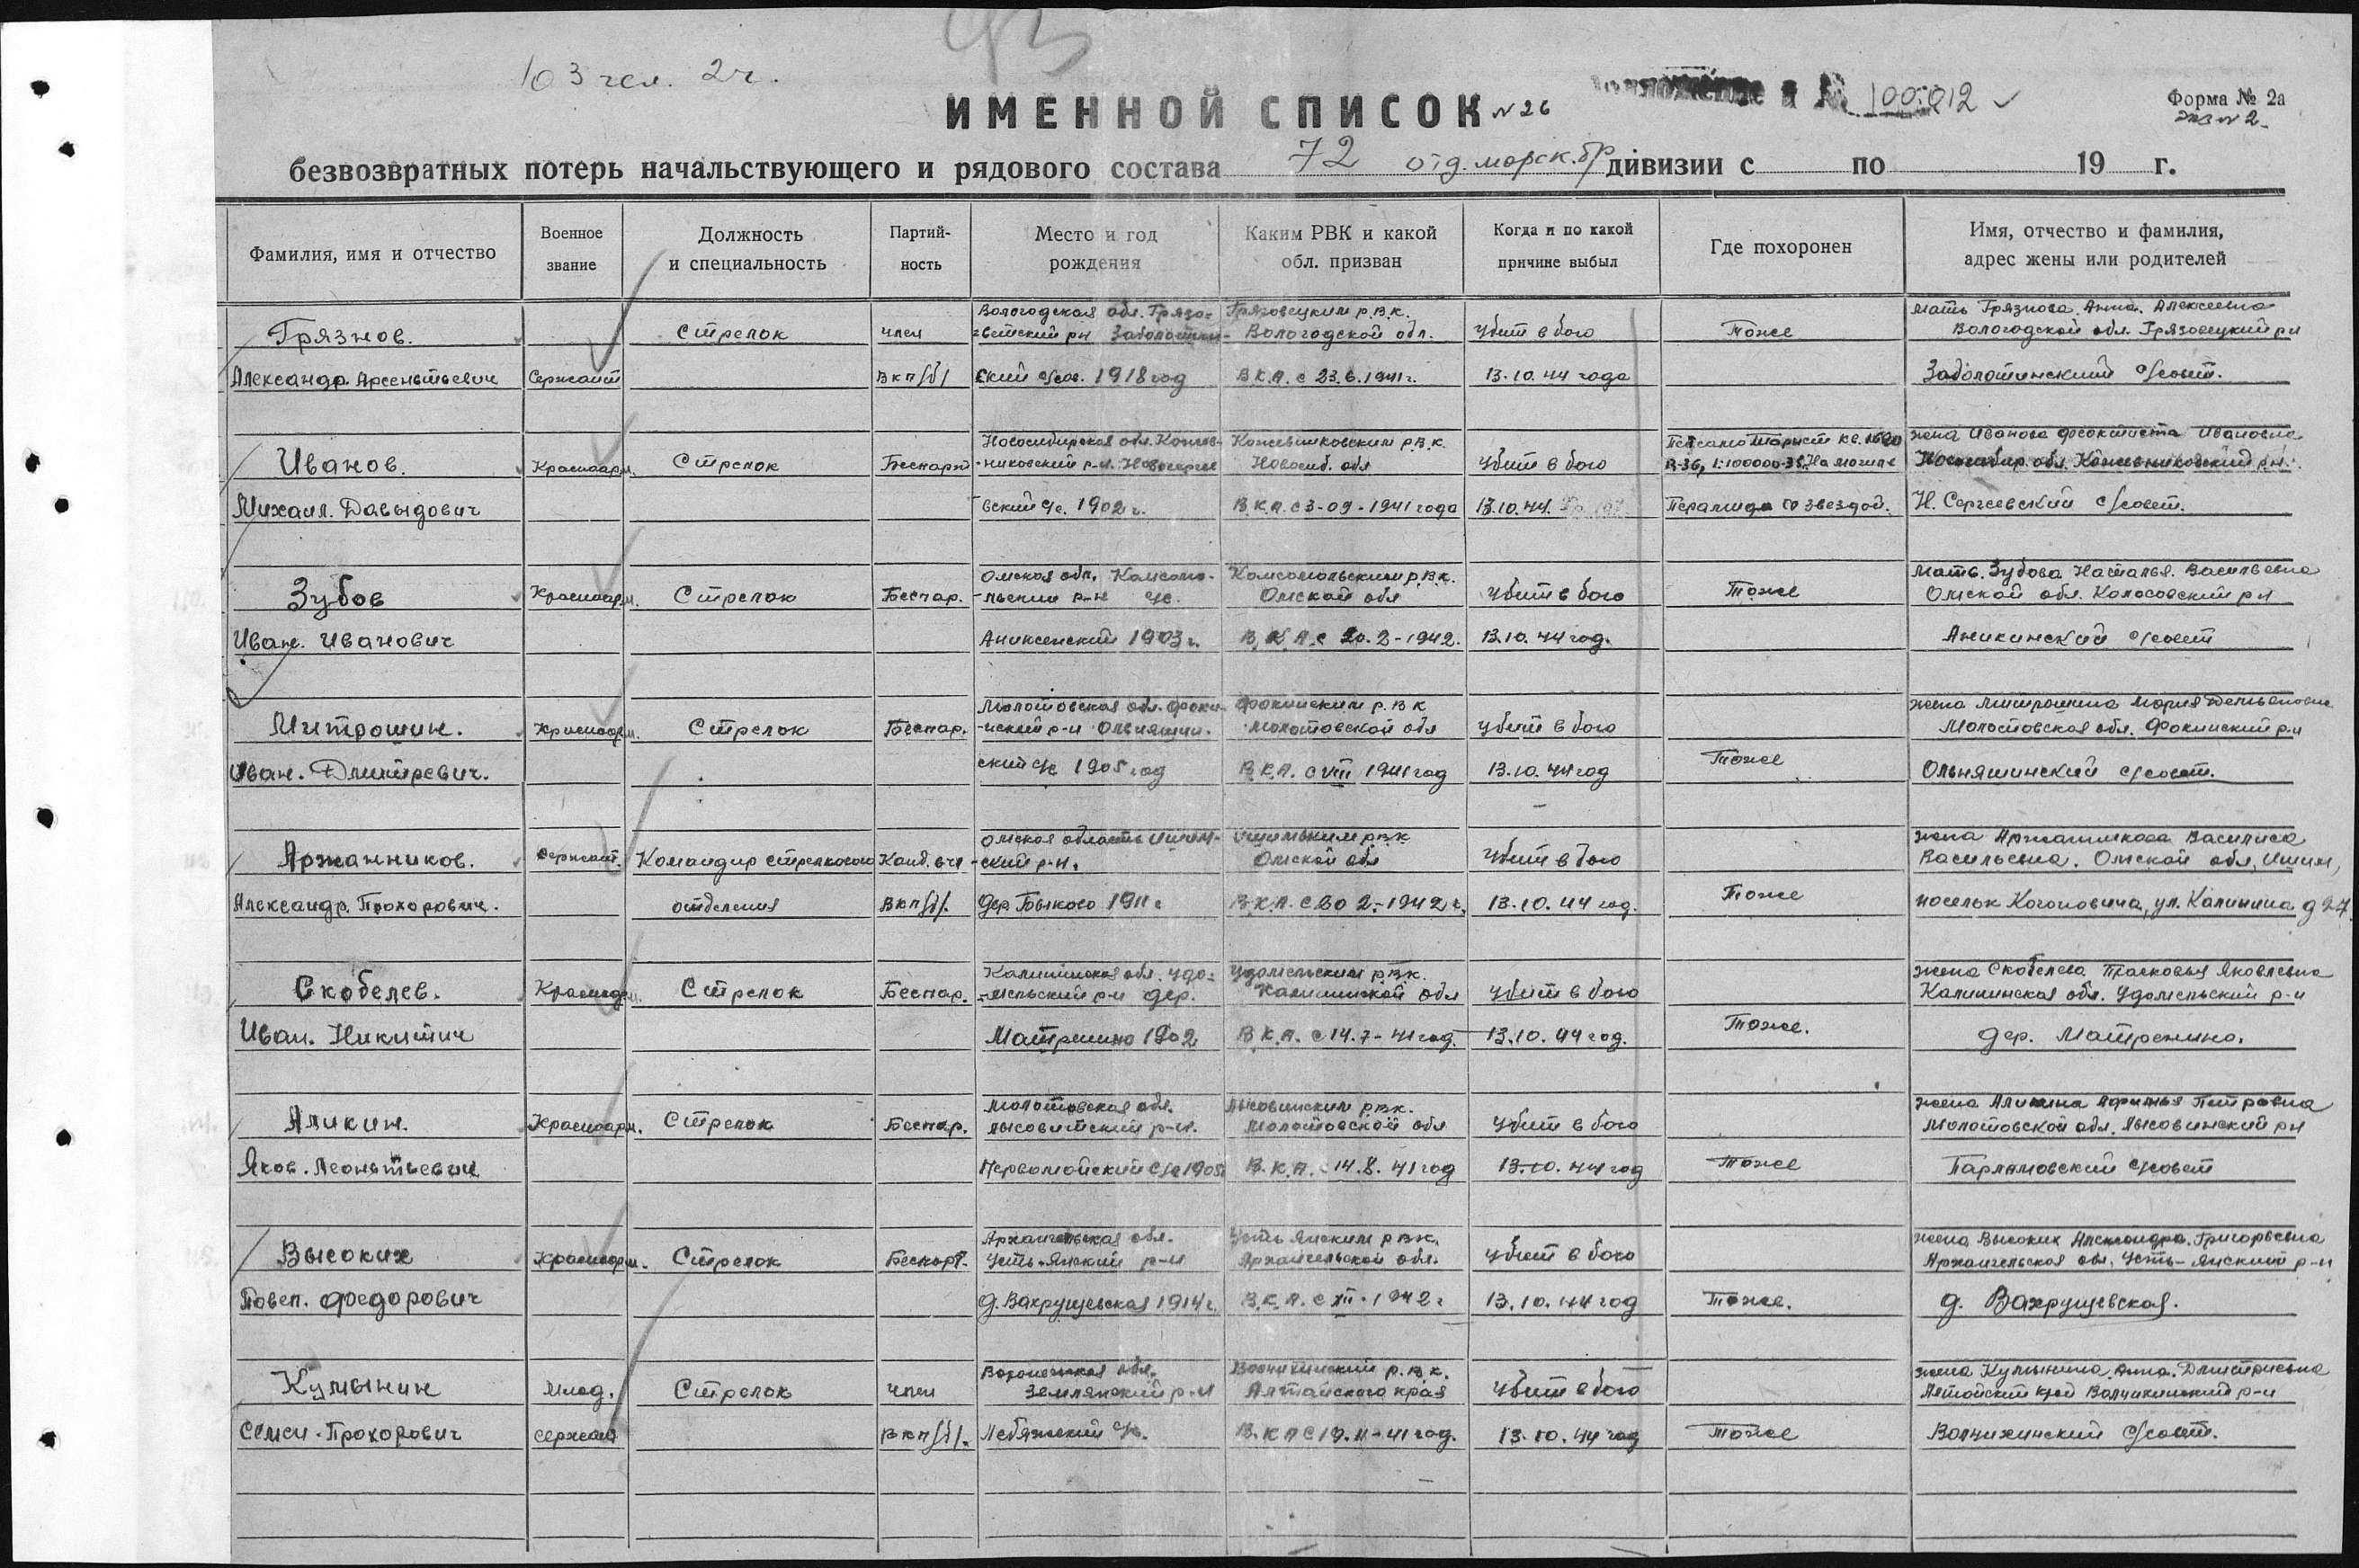 103 чел. 2ч.
ИМЕННОЙ СПИСОК N 26
Приложение к № 100.012
Форма № 2а
экз N 2
безвозвратных потерь начальствующего и рядового состава 72 отд. морск. бр дивизии с по 19 г.
Фамилия, имя и отчество
Военное звание
Должность и специальность
Партий-ность
Место и год рождения
Каким РВК и какой обл. призван
Когда и по какой причине выбыл
Где похоронен
Имя, отчество и фамилия, адрес жены или родителей
Грязнов. Стрелок член Вологодская обл. Грязо- Грязовецким р.в.к. Убит в бою Тоже мать Грязнова Анна Алексеевна
-вецкий рн Заболотин- Вологодской обл. Вологодской обл. Грязовецкий рн
Александр Арсентьевич Сержант ВКП/б/ ский с/сов. 1918 год В К.А. с 23.6.1941г. 13.10.44 года Заболотинский с/совет.
Новосибирская обл. Кожев- Кожевниковским р.в.к. жена Иванова Феоктиста Ивановна
Иванов. Красноарм. Стрелок Беспарт -никовский р-н. Новосиб. обл Убит в бою R-36, 1:100000-38. На могиле Новосибир. обл. Кожевниковский рн.
Михаил. Давыдович вский с/с. 1902 г. В К.А. с 3-09-1941 года 13.10.44. Перамида со звездой. Н. Сергеевский с/совет.
Омская обл. Комсомо- Комсомольским р.в.к. мать. Зубова Наталья. Васильевна
Зубов Красноарм. Стрелок Беспар. -льский р-н с/с. Омской обл Убит в бою Тоже Омской обл. Колосовский рн
Иван. Иванович Аниксенский 1903 г. В К.А. с 20.2-1942. 13.10.44 год. Аникинский с/совет
Молотовская обл. Фоки- Фокинским р.в.к жена Митрошина Мария Демьяновна
Митрошин. Красноарм. Стрелок Беспар. -нский р-н Ольняшин. Молотовской обл Убит в бою Молотовская обл. Фокинский р-н
Иван. Дмитревич. ский с/с 1905 год В К.А. с VIII 1941 год 13.10.44 год Тоже Ольняшинский с/совет.
Омская область Ишим- Ишимским рвк жена Аржанникова Василиса
Аржанников. Сержант. Командир стрелкового Канд. в чл -ский р-н. Омской обл Убит в бою Васильевна. Омской обл, Ишим,
Александр. Прохорович. отделения ВКП/б/. 1911 г В К.А. с 20 2-1942 г. 13.10.44 год. Тоже поселок Когоновича, ул. Калинина д 27.
Калининская обл. Удо- Удомельским рвк. жена Скобелева Прасковья Яковлевна
Скобелев. Красноарм. Стрелок Беспар. -мельский р-н дер. Калининской обл Убит в бою Калининская обл. Удомельский р-н
Иван. Никитич Матренино 1902 В К.А. с 14.7-41 год. 13.10.44 год. Тоже. дер. Матренино.
Молотовская обл. Лысовинским рвк. жена Аликина Афимья Петровна
Аликин. Красноарм. Стрелок Беспар. Лысовинский р-н. Молотовской обл Убит в бою Молотовской обл. Лысовинский рн
Яков. Леонтьевич Первомойский с/с 1905 В К.А. с 14.8.41 год 13.10.44 год Тоже Парламовский с/совет
Архангельская обл. Усть Янским рвк. жена Высоких Александра. Григорьевна
Высоких Красноарм. Стрелок Беспарт. Усть-Янский р-н Архангельской обл. Убит в бою Архангельская обл. Усть-Янский р-н
Павел. Федорович д. Вахрушевская 1914 г. В К.А. с XII-1942 г 13.10.44 год Тоже. д. Вахрушевская.
Воронежская обл. Волчихинский р.в.к. жена Кулынина. Анна. Дмитриевна
Кулынин млад. Стрелок член Землянский р-н Алтайского края Убит в бою Алтайский край Волчихинский р-н
Семен. Прохорович сержант ВКП/б/. Лебяжский с/с. В К.А с 19.11-41 год. 13.10.44 год Тоже Волчихинский с/совет.